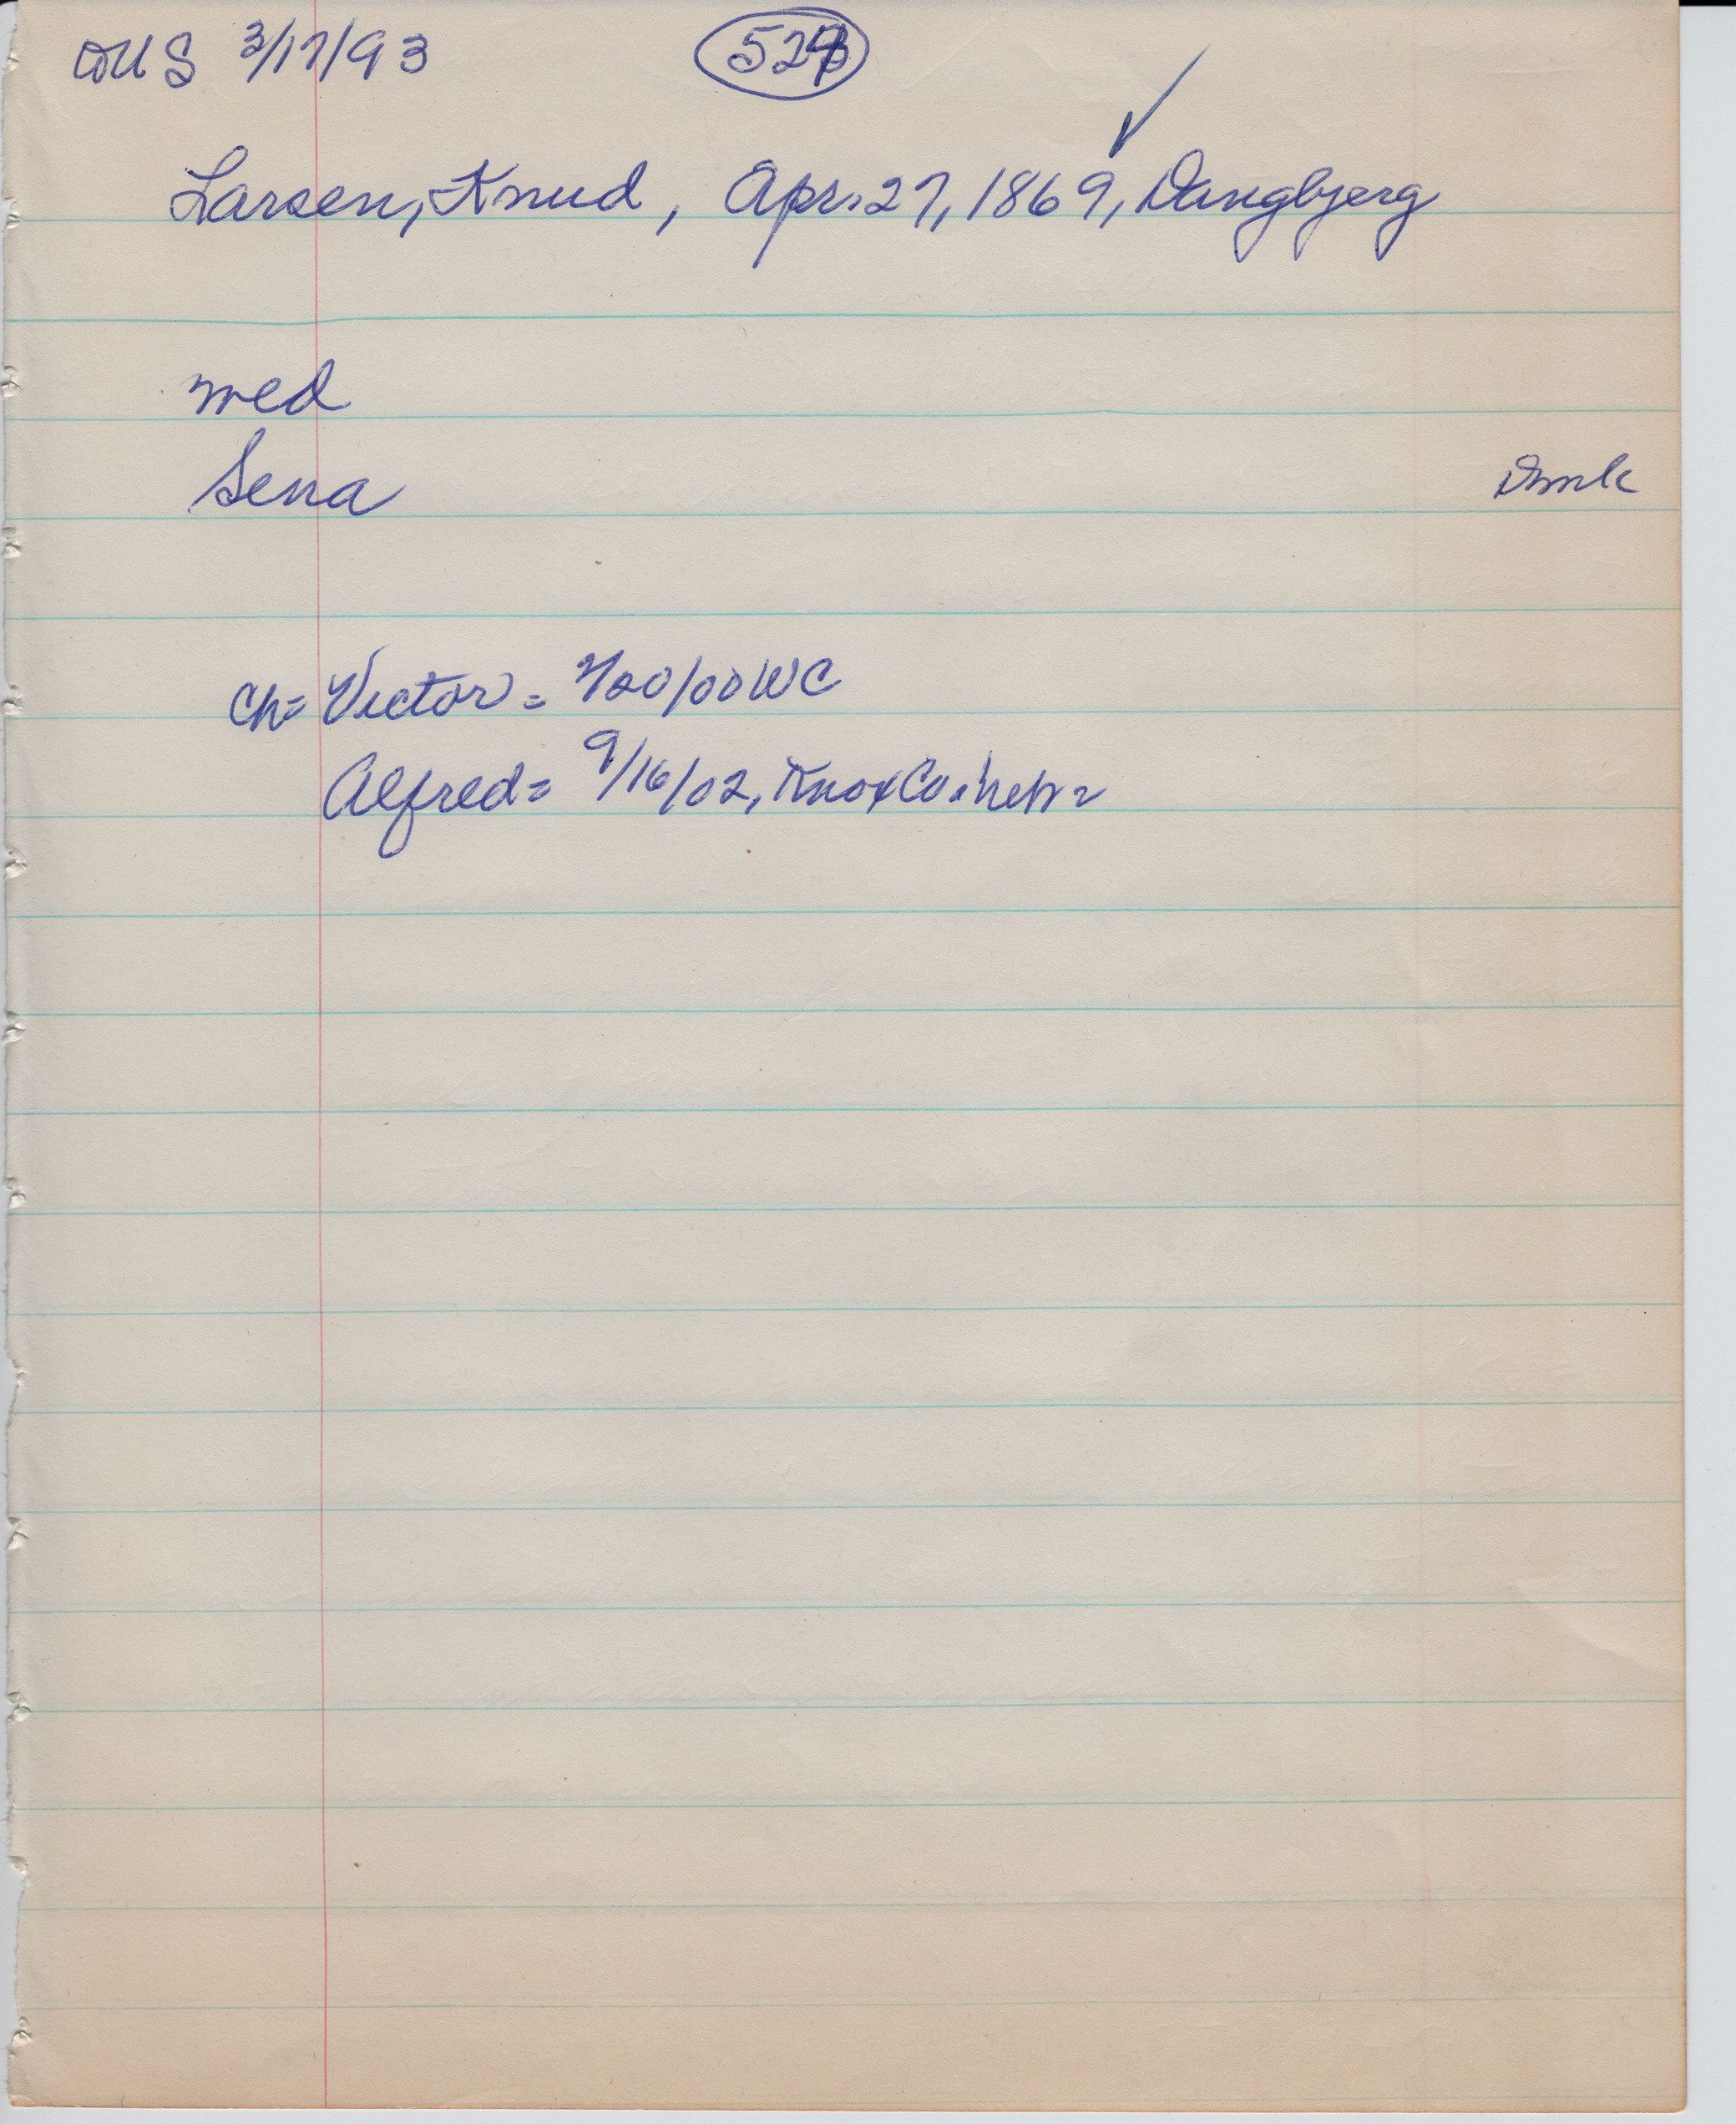 DUS 3/17/93
Larsen, Knud, Apr. 27, 1869, Dangbjerg
med
Sena Dmk
Ch= Victor = WC
Alfred = 9/16/02, Knox Co. Neb=